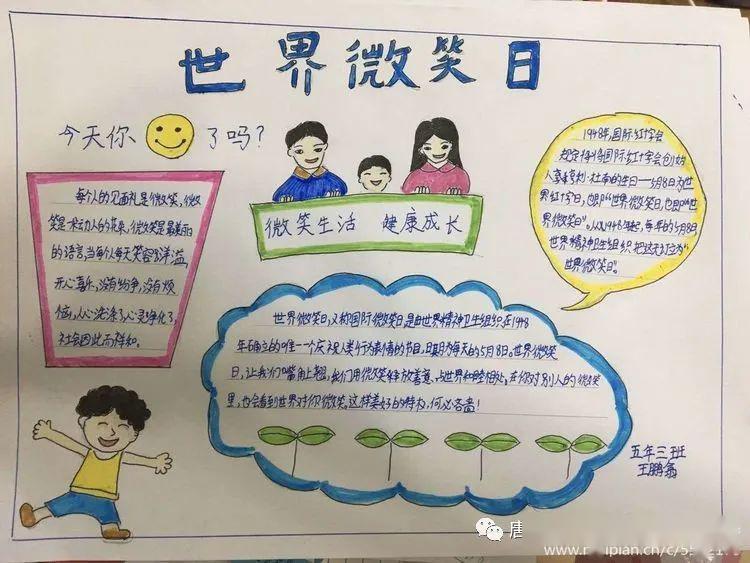 世界微笑日
今天你
了吗?
微笑生活 健康成长
每个人的见面礼是微笑,微
笑是动人的花束,微笑是最美的
的语言,当每个人每天笑容洋溢,
开心喜乐,没有纷争,没有烦
恼,人心洗涤了,心灵净化了,
社会因此而祥和。
1948年,国际红十字会
规定将国际红十字会创始
人亨利·杜南的生日——5月8日为世
界红十字日,也即"世界微笑日,也即"世
界微笑日"。从1948年起,每年的5月8日
世界精神卫生组织把这天订立为"
世界微笑日"。
世界微笑日,又称国际微笑日是由世界精神卫生组织在1948
年确立的唯一一个庆祝人类行为表情的节日,日期为每天的5月8日。世界微笑
日,让我们嘴角上翘,我们用微笑释放善意,与世界和睦相处。在你对别人的微笑
里,也会看到世界对你微笑。这样美好的特权,何必吝啬!
五年三班
王鹏翥
唐